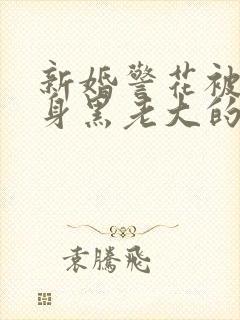 新婚警花被
身黑老大的
袁腾飛